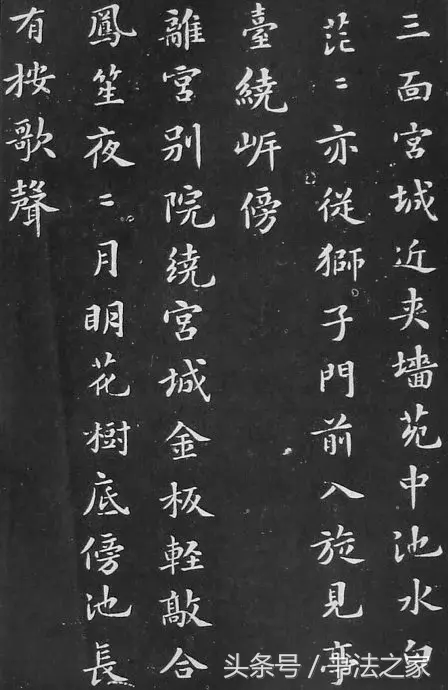 三面宮城近夾墻苑中池水白
茫〻亦從獅子門前入旋見亭
臺繞岍傍
離宮別院繞宮城金板輕敲合
鳳笙夜〻月明花樹底傍池長
有按歌聲
头条号 / 书法之家